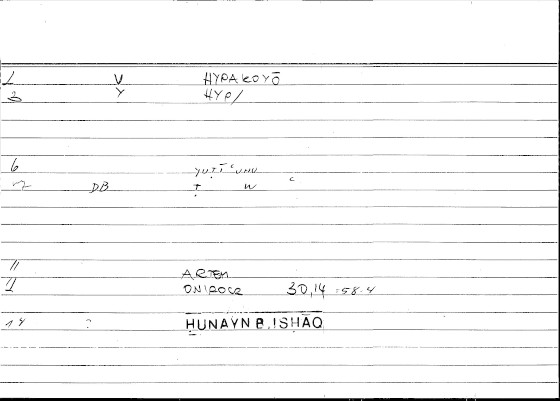 1 V HYPAKOYŌ
3 Y HYP/
6 yuṭīʿuhu
DB ṭ w ʿ
11 ARTEM
ONIROCR 30,14 = 58.4
14 ? ḤUNAYN B. ISḤĀQ